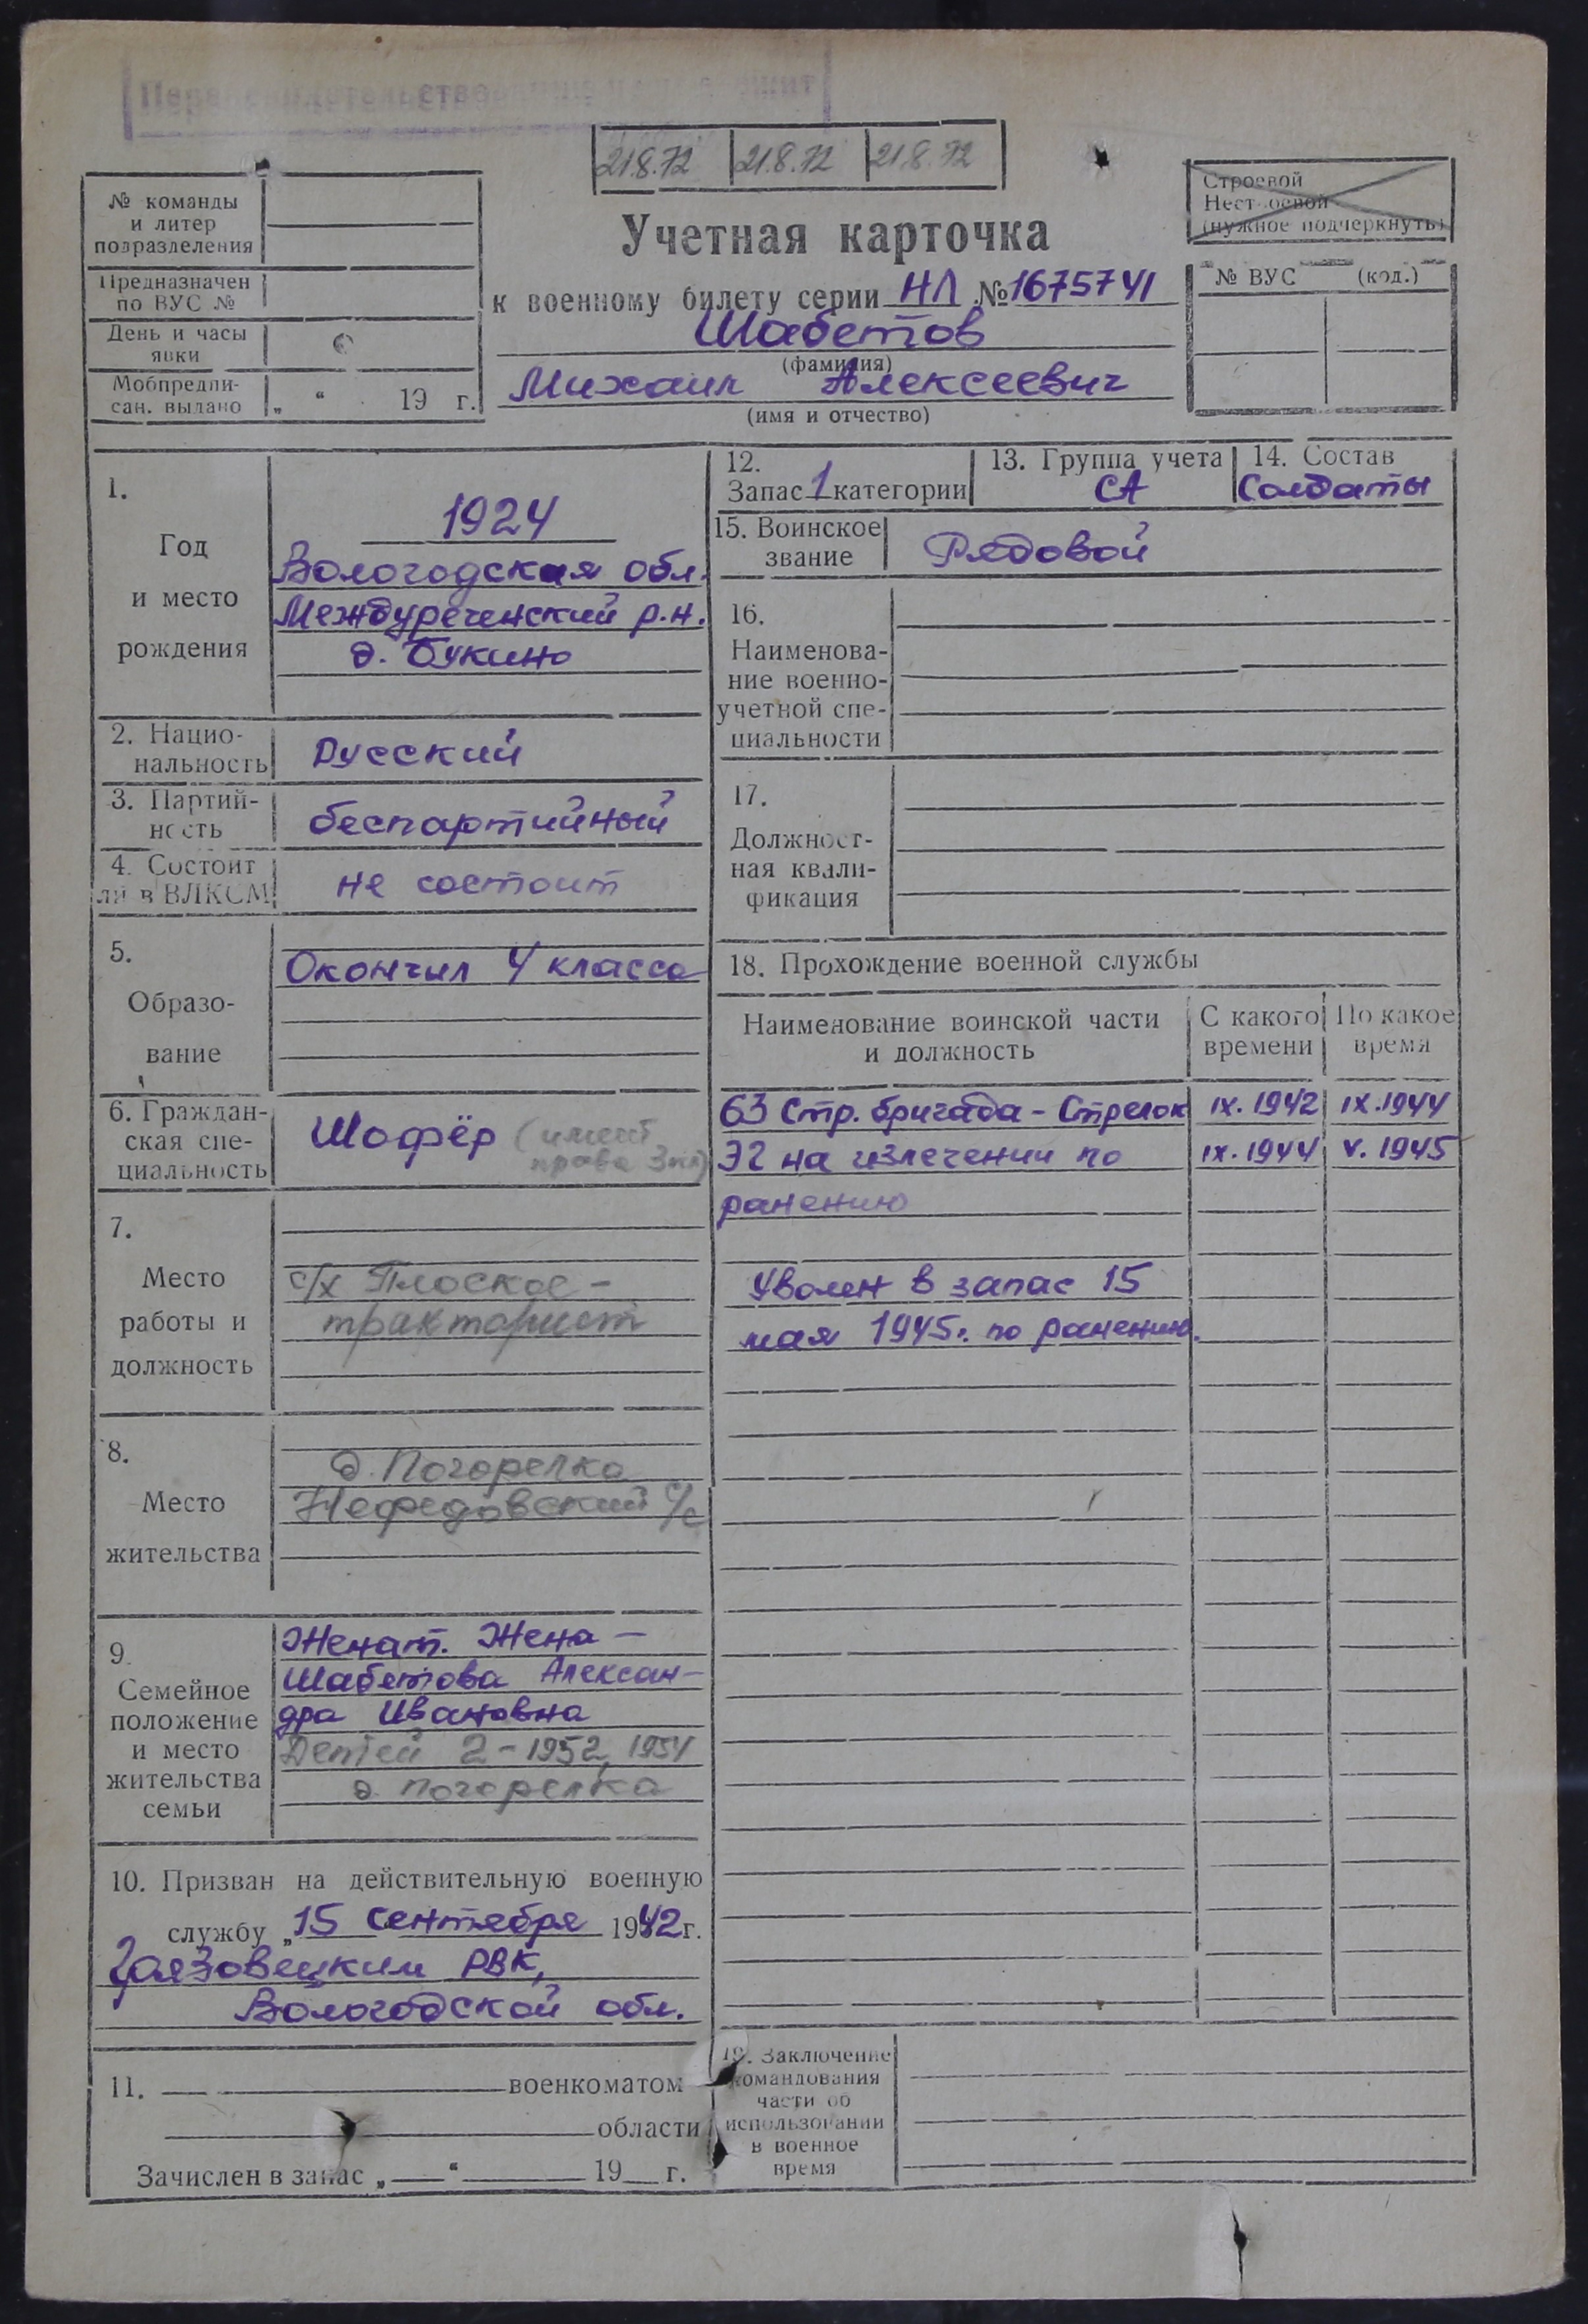 21.8.72 21.8.72 21.8.72
Строевой
Нестроевой
(нужное подчеркнуть)
№ команды
и литер
подразделения
Предназначен
по ВУС №
День и часы
явки
Мобпредпи-
сан. выдано „ “ 19 г.
Учетная карточка
к военному билету серии НЛ № 1675741
Шабетов
(фамилия)
Михаил Алексеевич
(имя и отчество)
№ ВУС (код.)
1.
Год
и место
рождения
1924
Вологодская обл.
Междуреченский р.н.
д. Букино
2. Нацио-
нальность
Русский
3. Партий-
ность
беспартийный
4. Состоит
ли в ВЛКСМ
не состоит
5.
Образо-
вание
Окончил 4 класса
6. Граждан-
ская спе-
циальность
Шофёр (имеет
права 3 кл)
7.
Место
работы и
должность
с/х Плоское –
тракторист
8.
Место
жительства
д. Погорелка
Нефедовский с/с
9.
Семейное
положение
и место
жительства
семьи
Женат. Жена –
Шабетова Алексан-
дра Ивановна
Детей 2 – 1952, 1954
д. Погорелка
10. Призван на действительную военную
службу „15 сентября 1942 г.
Грязовецким РВК,
Вологодской обл.
11. военкоматом
области
Зачислен в запас „ “ 19 г.
12.
Запас 1 категории
13. Группа учета
СА
14. Состав
Солдаты
15. Воинское
звание
Рядовой
16.
Наименова-
ние военно-
учетной спе-
циальности
17.
Должност-
ная квали-
фикация
18. Прохождение военной службы
Наименование воинской части
и должность
С какого
времени
По какое
время
63 Стр. бригада – Стрелок IX. 1942 IX. 1944
ЭГ на излечении по IX. 1944 V. 1945
ранению
Уволен в запас 15
мая 1945г. по ранению.
19. Заключение
командования
части об
использовании
в военное
время